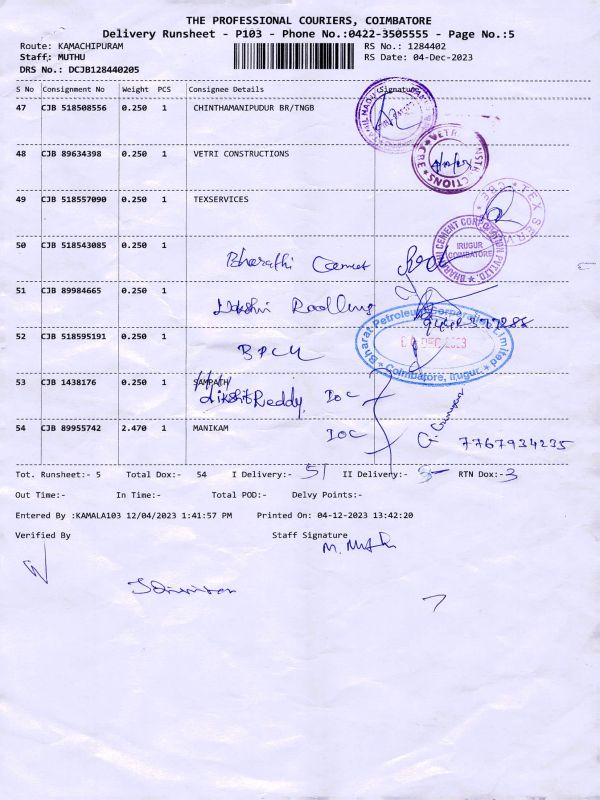 THE PROFESSIONAL COURIERS, COIMBATORE
Delivery Runsheet - P103 - Phone No.:0422-3505555 - Page No.:5
Route: KAMACHIPURAM
RS No.: 1284402
Staff: MUTHU
RS Date: 04-Dec-2023
DRS No.: DCJB128440205
S No Consignment No Weight PCS Consignee Details Signature
47 CJB 518508556 0.250 1 CHINTHAMANIPUDUR BR/TNGB
48 CJB 89634398 0.250 1 VETRI CONSTRUCTIONS
49 CJB 518557090 0.250 1 TEXSERVICES
TEX SERV
50 CJB 518543085 0.250 1
Bharathi Cement
BHARATHI CEMENT CORPORATION PVT LTD
IRUGUR
COIMBATORE
51 CJB 89984665 0.250 1
Bharat Petroleum Corporation Limited
DEC 2023
Coimbatore, Irugur.
52 CJB 518595191 0.250 1
BPCL
53 CJB 1438176 0.250 1 SAMPATH
Reddy IOC
54 CJB 89955742 2.470 1 MANIKAM
IOC
7767934235
Tot. Runsheet:- 5 Total Dox:- 54 I Delivery:- 51 II Delivery:- RTN Dox:- 3
Out Time:- In Time:- Total POD:- Delvy Points:-
Entered By :KAMALA103 12/04/2023 1:41:57 PM Printed On: 04-12-2023 13:42:20
Verified By Staff Signature